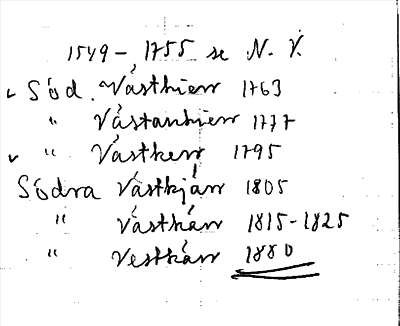 1549 - 1755 se N. V.
✓ Söd. Västhien 1763
" Västanhien 1777
✓ " Västken 1795
Södra Västkjän 1805
" Västkän 1815-1825
" Vestkän 1880